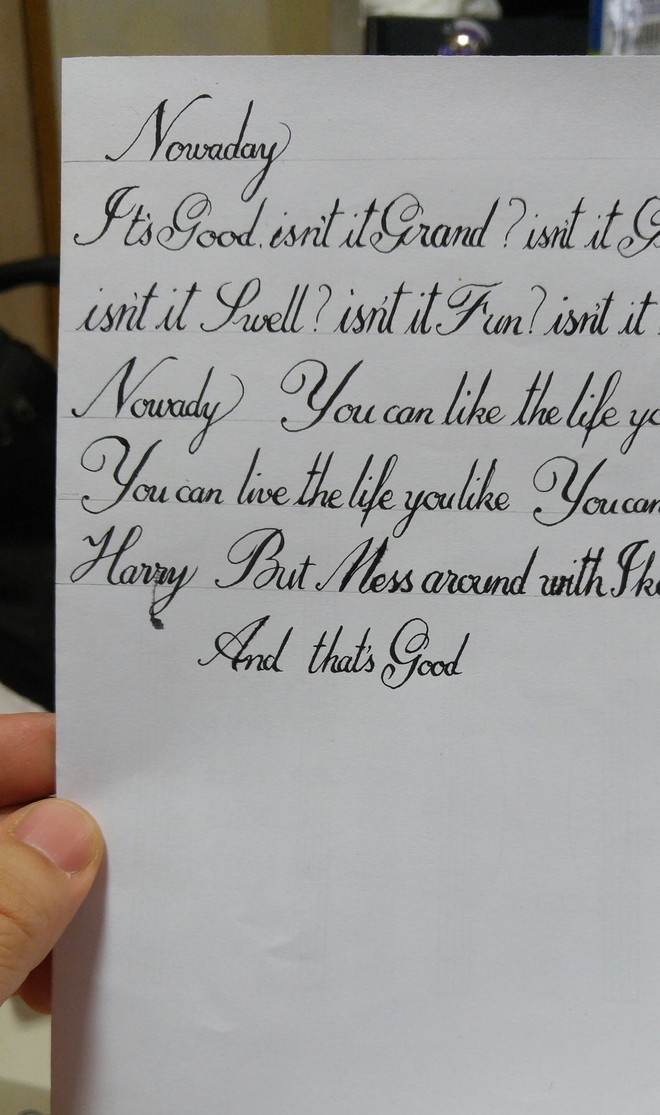 Nowaday
It's Good. isn't it Grand? isn't it
isn't it Swell? isn't it Fun? isn't it
Nowady You can like the life
You can live the life you like You can
Harry But Mess around with Ike
And that's Good